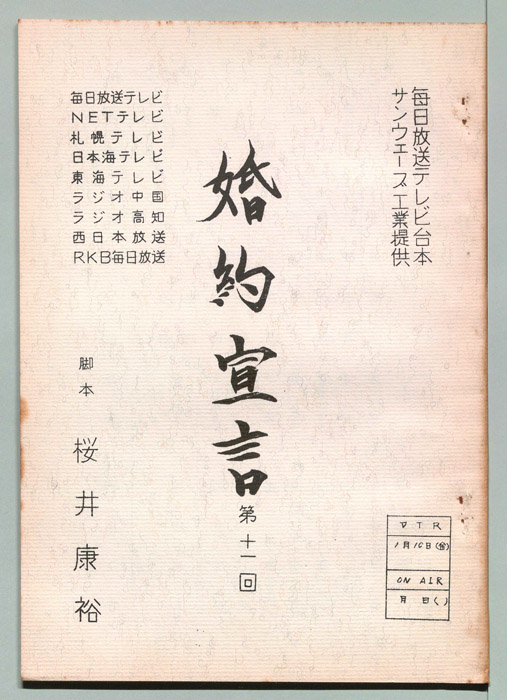 毎日放送テレビ台本
サンウエーブ工業提供
婚約宣言
第十一回
毎日放送テレビ
NETテレビ
札幌テレビ
日本海テレビ
東海テレビ
ラジオ中国
ラジオ高知
西日本放送
RKB毎日放送
脚本
桜井康裕
VTR
1月16日(金)
ON AIR
月 日( )